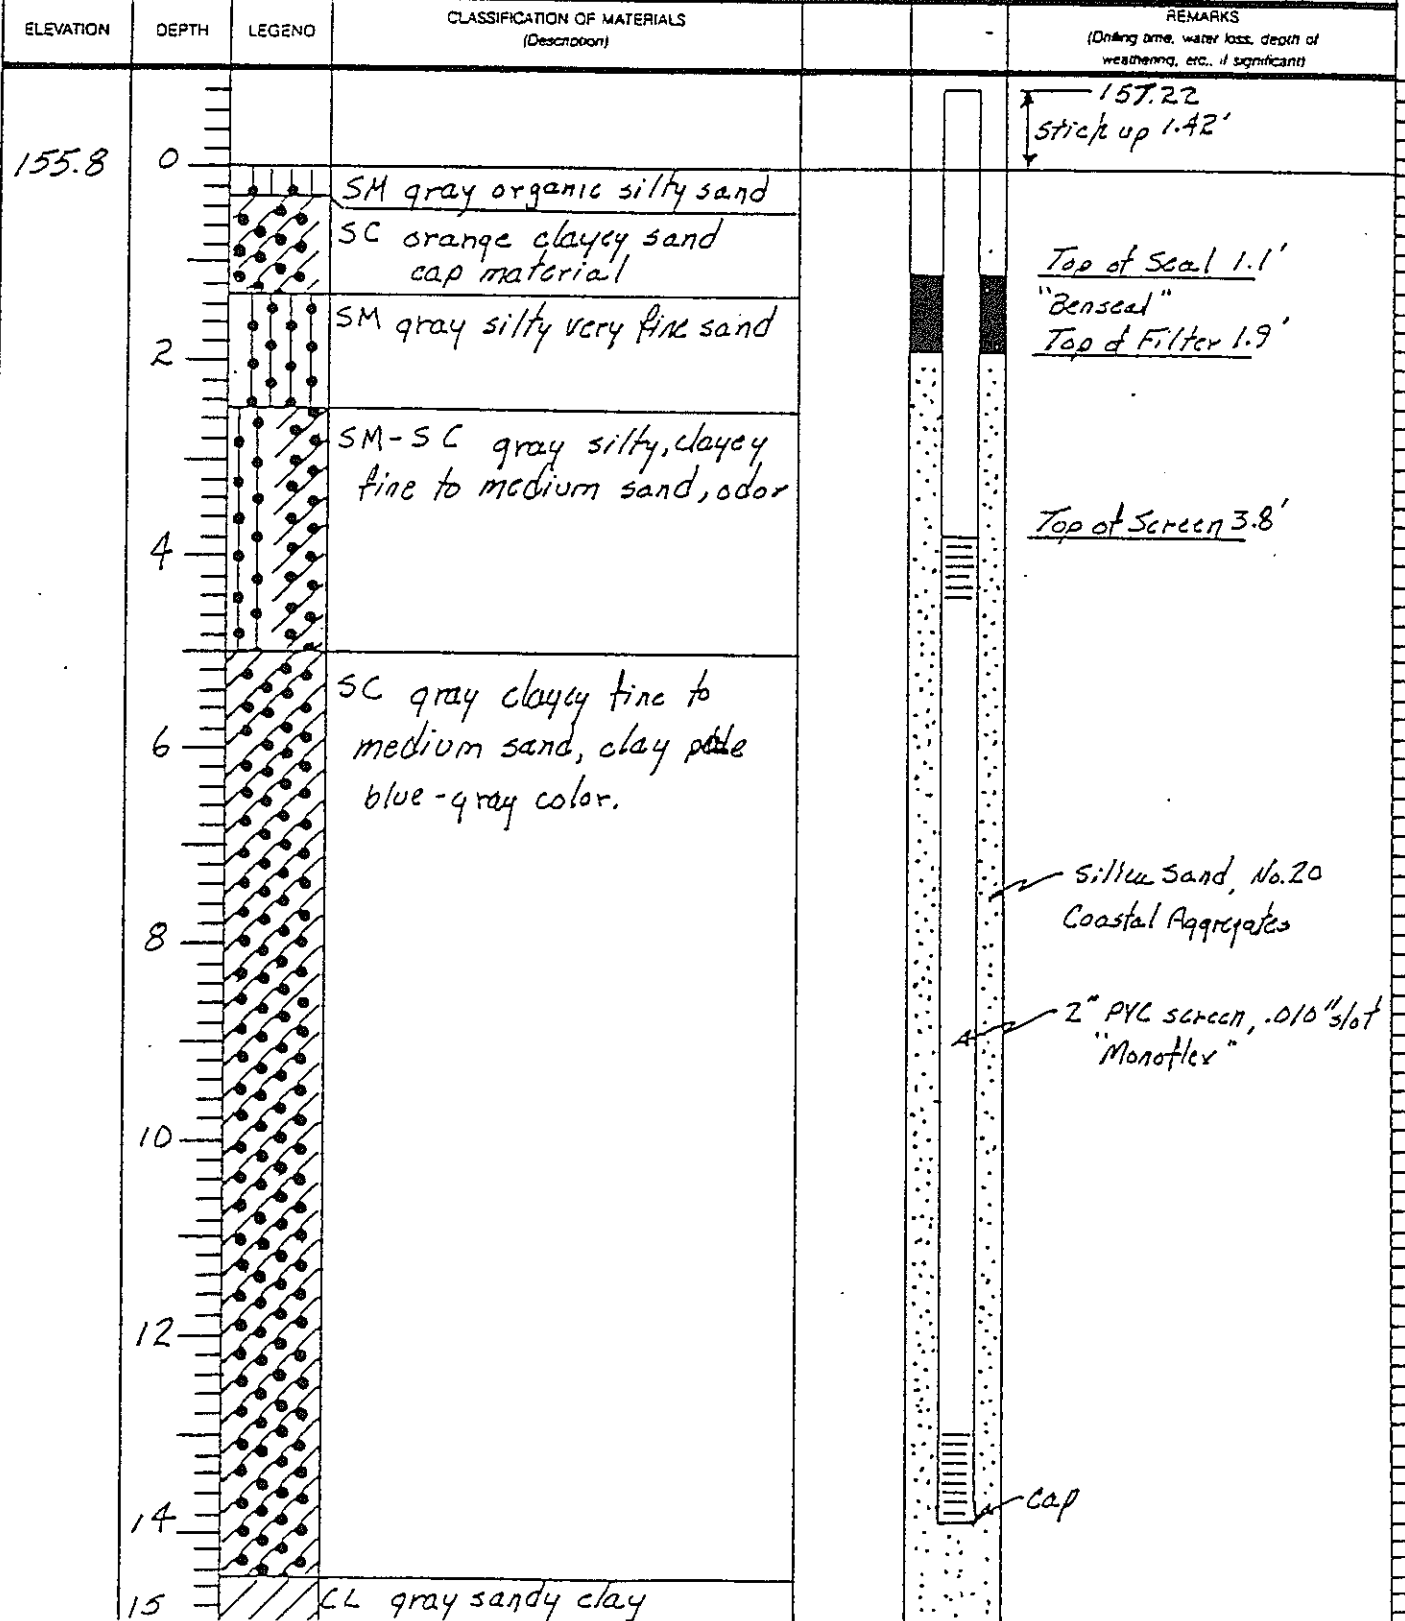 ELEVATION
DEPTH
LEGEND
CLASSIFICATION OF MATERIALS
(Description)
REMARKS
(Drilling time, water loss, depth of
weathering, etc., if significant)
155.8
0
2
4
6
8
10
12
14
15
SM gray organic silty sand
SC orange clayey sand
cap material
SM gray silty very fine sand
SM-SC gray silty, clayey
fine to medium sand, odor
SC gray clayey fine to
medium sand, clay
blue-gray color.
CL gray sandy clay
157.22
stick up 1.42'
Top of Seal 1.1'
"Benseal"
Top of Filter 1.9'
Top of Screen 3.8'
Sand, No.20
Coastal Aggregates
2" PVC screen, .010" slot
"Monoflex"
cap